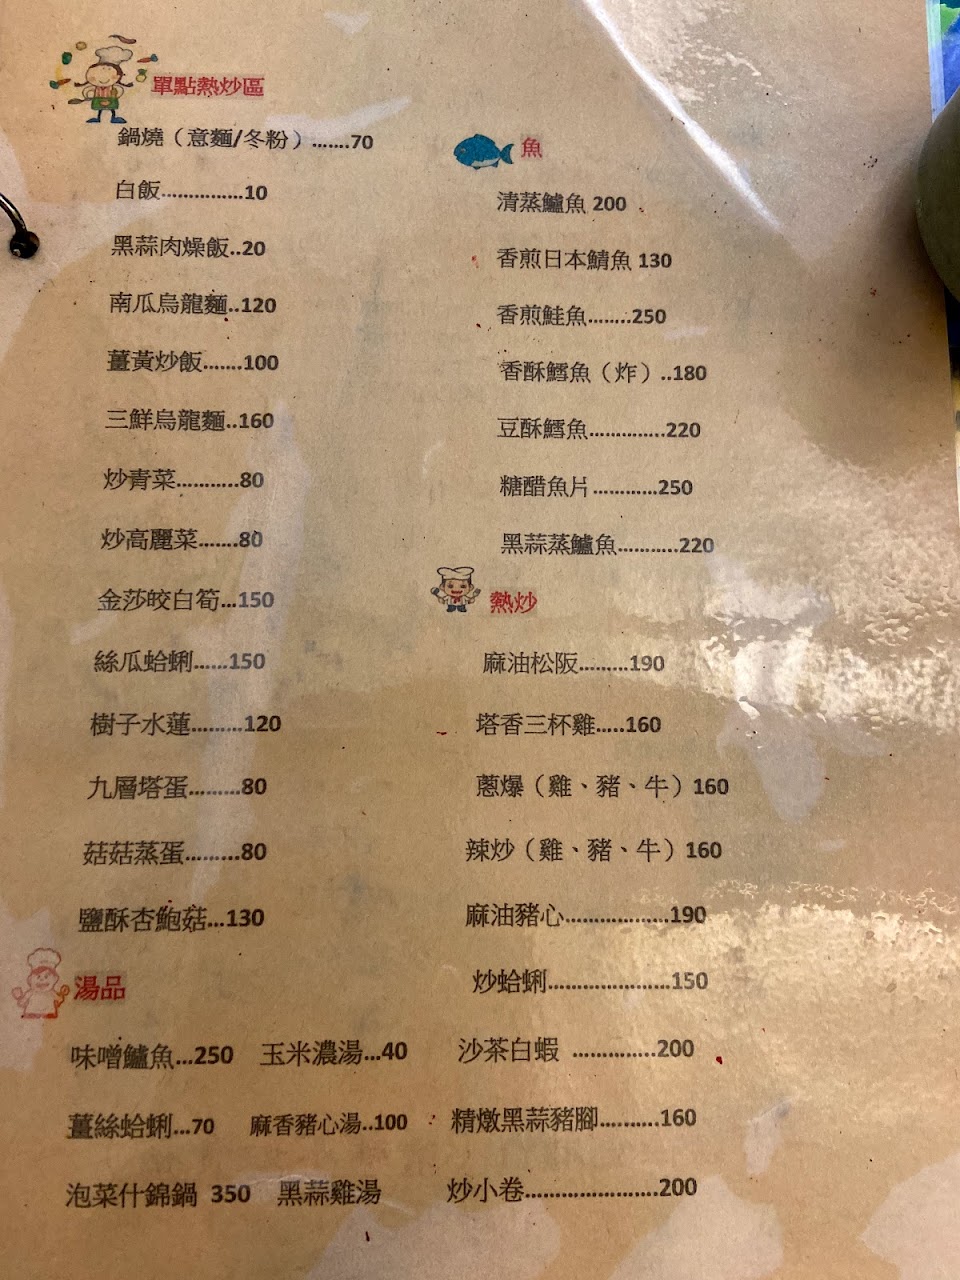 單點熱炒區
鍋燒（意麵/冬粉）.......70
白飯...............10
黑蒜肉燥飯..20
南瓜烏龍麵..120
薑黃炒飯.......100
三鮮烏龍麵..160
炒青菜...........80
炒高麗菜.......80
金莎皎白筍...150
絲瓜蛤蜊......150
樹子水蓮.........120
九層塔蛋.........80
菇菇蒸蛋.........80
鹽酥杏鮑菇...130
湯品
味噌鱸魚...250 玉米濃湯...40
薑絲蛤蜊...70 麻香豬心湯..100
泡菜什錦鍋 350 黑蒜雞湯
魚
清蒸鱸魚 200
香煎日本鯖魚 130
香煎鮭魚........250
香酥鱈魚（炸）..180
豆酥鱈魚..............220
糖醋魚片............250
黑蒜蒸鱸魚...........220
熱炒
麻油松阪.........190
塔香三杯雞.....160
蔥爆（雞、豬、牛）160
辣炒（雞、豬、牛）160
麻油豬心...................190
炒蛤蜊......................150
沙茶白蝦 ...............200
精燉黑蒜豬腳...........160
炒小卷........................200